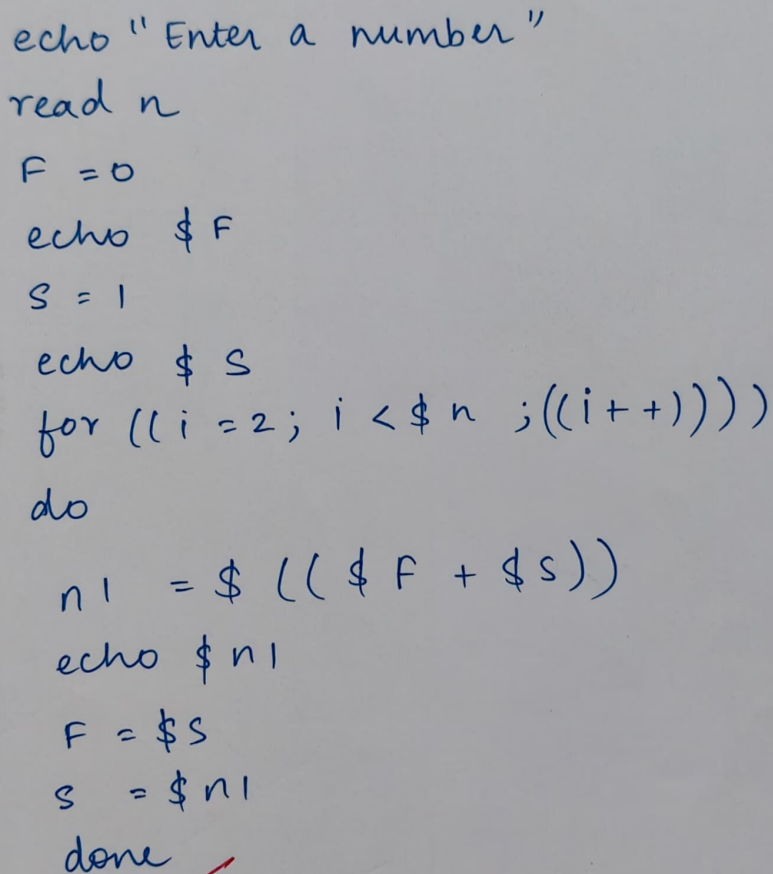 echo "Enter a number"
read n
F = 0
echo $ F
S = 1
echo $ S
for ((i = 2; i < $ n ; ((i++))))
do
n1 = $ (( $ F + $ S))
echo $ n1
F = $ S
S = $ n1
done